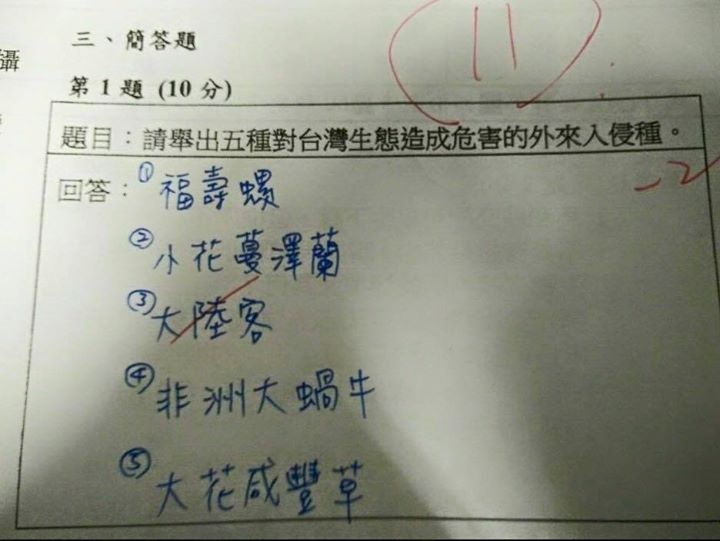 攝
三、簡答題
11
第1題 (10分)
題目：請舉出五種對台灣生態造成危害的外來入侵種。
-2
回答：①福壽螺
②小花蔓澤蘭
③大陸客
④非洲大蝸牛
⑤大花咸豐草